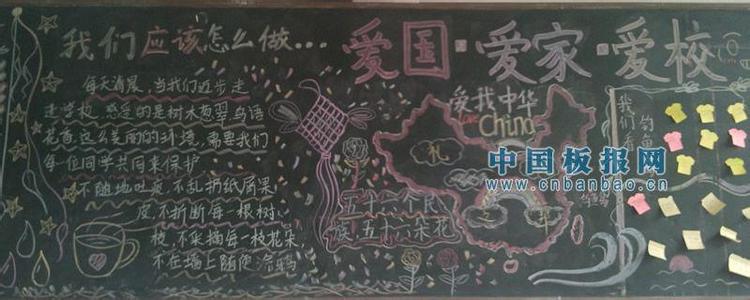 我们应该怎么做...
每天清晨，当我们迈步走
进学校，感受的是树木葱翠鸟语
花香，这么美丽的环境，需要我们
每一位同学共同来保护
不随地吐痰，不乱扔纸屑果
皮，不折断每一根树
枝，不采摘每一枝花朵，
不在墙上随便涂鸦
爱国·爱家·爱校
爱我中华
Love
China
礼
五十六个民
族，五十六朵花
我们看
钓鱼
中国板报网
www.cnbanbao.cn